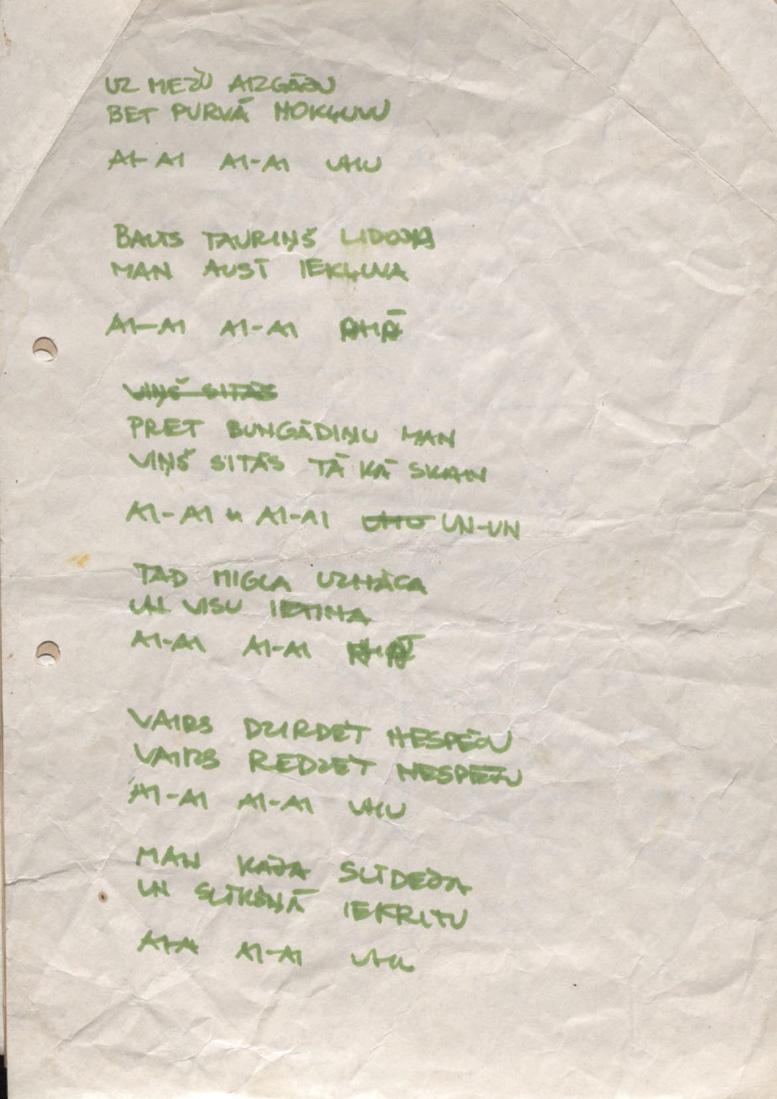 UZ MEŽU AIZGĀJU
BET PURVĀ NOKĻUVU
AI-AI AI-AI UHU
BALTS TAURIŅŠ LIDOJA
MAN AUSĪ IEKĻUVA
AI-AI AI-AI AHĀ
VIŅŠ SITĀS
PRET BUNGĀDIŅU MAN
VIŅŠ SITĀS TĀ KĀ SKAN
AI-AI AI-AI UHU UN-UN
TAD MIGLA UZNĀCA
UN VISU IETINA
AI-AI AI-AI AHĀ
VAIRS DZIRDĒT NESPĒJU
VAIRS REDZĒT NESPĒJU
AI-AI AI-AI UHU
MAN KĀJA SLĪDĒJA
UN SLĪKŠŅĀ IEKRITU
AI-AI AI-AI UHU